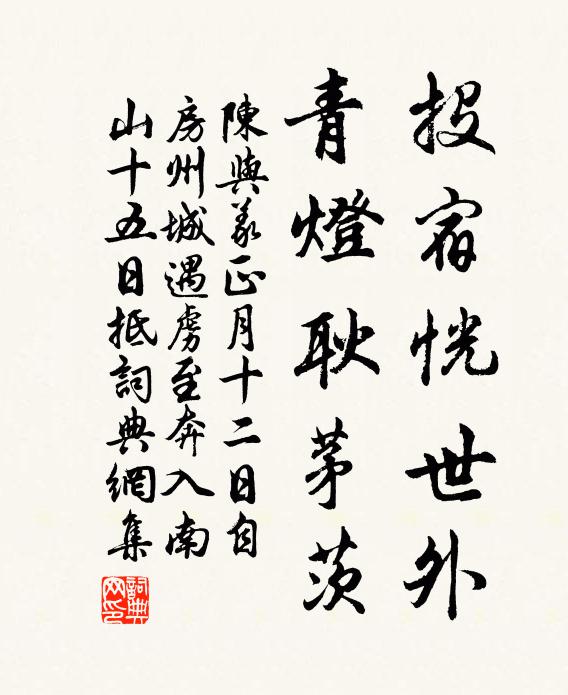 投宿恍世外
青燈耿茅茨
陳與義正月十二日自
房州城遇虜至奔入南
山十五日抵詞典網集
詞典
網印